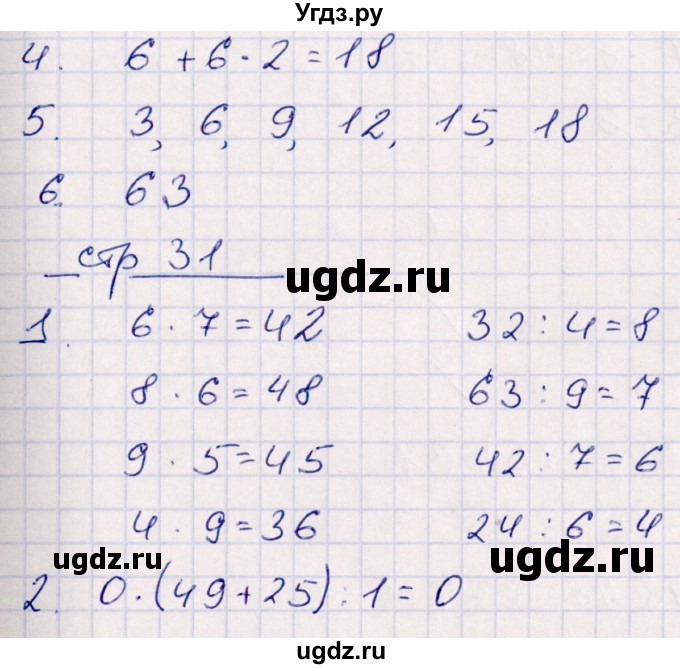 Угдз.ру
4. 6 + 6 · 2 = 18
5. 3, 6, 9, 12, 15, 18
6. 63
стр 31
ugdz.ru
1. 6 · 7 = 42 32 : 4 = 8
8 · 6 = 48 63 : 9 = 7
9 · 5 = 45 42 : 7 = 6
4 · 9 = 36 24 : 6 = 4
ugdz.ru ugdz.ru
2. 0 · (49 + 25) : 1 = 0
ugdz.ru